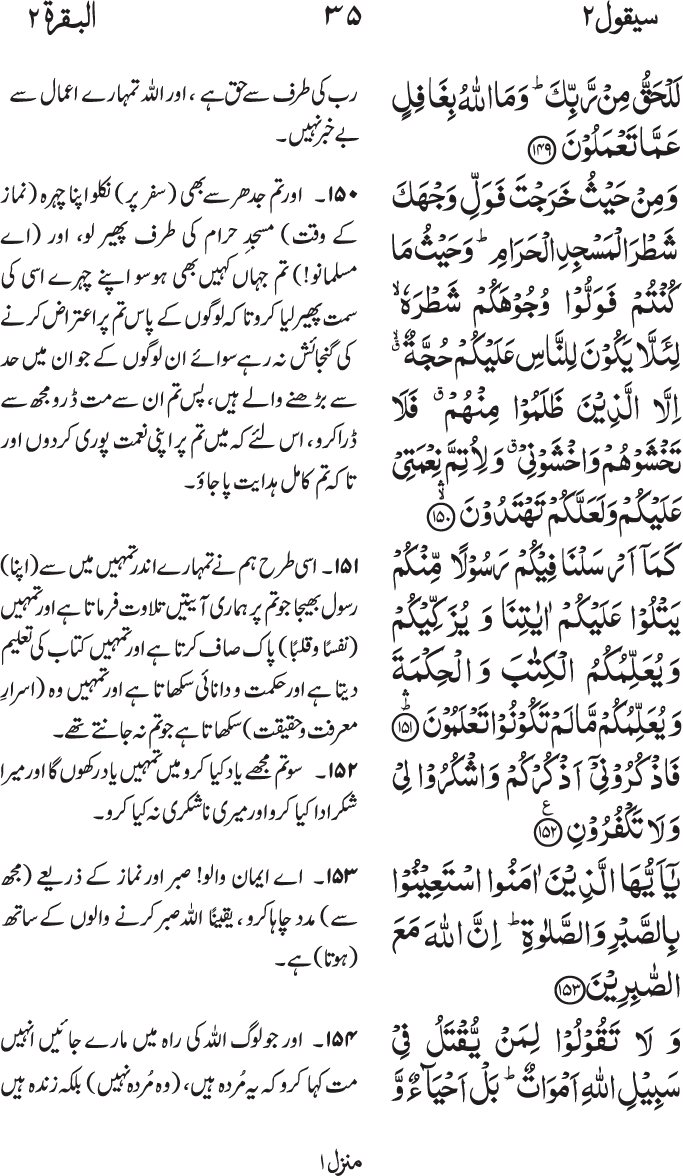 سیقول ۲
۳۵
البقرۃ ۲
لَلْحَقُّ مِنْ رَّبِّكَ ؕ وَمَا اللّٰهُ بِغَافِلٍ
عَمَّا تَعْمَلُوْنَ ﴿۱۴۹﴾
وَمِنْ حَیْثُ خَرَجْتَ فَوَلِّ وَجْهَكَ
شَطْرَ الْمَسْجِدِ الْحَرَامِ ؕ وَحَیْثُ مَا
كُنْتُمْ فَوَلُّوْا وُجُوْهَكُمْ شَطْرَهٗ ۙ
لِئَلَّا یَكُوْنَ لِلنَّاسِ عَلَیْكُمْ حُجَّةٌ ۙۗ
اِلَّا الَّذِیْنَ ظَلَمُوْا مِنْهُمْ ۗ فَلَا
تَخْشَوْهُمْ وَاخْشَوْنِیْ ۗ وَلِاُتِمَّ نِعْمَتِیْ
عَلَیْكُمْ وَلَعَلَّكُمْ تَهْتَدُوْنَ ﴿۱۵۰﴾ۙۛ
كَمَاۤ اَرْسَلْنَا فِیْكُمْ رَسُوْلًا مِّنْكُمْ
یَتْلُوْا عَلَیْكُمْ اٰیٰتِنَا وَ یُزَكِّیْكُمْ
وَیُعَلِّمُكُمُ الْكِتٰبَ وَ الْحِكْمَةَ
وَیُعَلِّمُكُمْ مَّا لَمْ تَكُوْنُوْا تَعْلَمُوْنَ ﴿۱۵۱﴾ؕۛ
فَاذْكُرُوْنِیْۤ اَذْكُرْكُمْ وَاشْكُرُوْا لِیْ
وَلَا تَكْفُرُوْنِ ﴿۱۵۲﴾ ع
یٰۤاَیُّهَا الَّذِیْنَ اٰمَنُوا اسْتَعِیْنُوْا
بِالصَّبْرِ وَالصَّلٰوةِ ؕ اِنَّ اللّٰهَ مَعَ
الصّٰبِرِیْنَ ﴿۱۵۳﴾
وَ لَا تَقُوْلُوْا لِمَنْ یُّقْتَلُ فِیْ
سَبِیْلِ اللّٰهِ اَمْوَاتٌ ؕ بَلْ اَحْیَآءٌ وَّ
رب کی طرف سے حق ہے، اور اللہ تمہارے اعمال سے
بے خبر نہیں۔
۱۵۰۔ اور تم جدھر سے بھی (سفر پر) نکلو اپنا چہرہ (نماز
کے وقت) مسجدِ حرام کی طرف پھیر لو، اور (اے
مسلمانو!) تم جہاں کہیں بھی ہو سو اپنے چہرے اسی کی
سمت پھیر لیا کرو تاکہ لوگوں کے پاس تم پر اعتراض کرنے
کی گنجائش نہ رہے سوائے ان لوگوں کے جو ان میں حد
سے بڑھنے والے ہیں، پس تم ان سے مت ڈرو مجھ سے
ڈرا کرو، اس لئے کہ میں تم پر اپنی نعمت پوری کردوں اور
تاکہ تم کامل ہدایت پا جاؤ۔
۱۵۱۔ اسی طرح ہم نے تمہارے اندر تمہیں میں سے (اپنا)
رسول بھیجا جو تم پر ہماری آیتیں تلاوت فرماتا ہے اور تمہیں
(نفسًا و قلبًا) پاک صاف کرتا ہے اور تمہیں کتاب کی تعلیم
دیتا ہے اور حکمت و دانائی سکھاتا ہے اور تمہیں وہ (اسرارِ
معرفت و حقیقت) سکھاتا ہے جو تم نہ جانتے تھے۔
۱۵۲۔ سو تم مجھے یاد کیا کرو میں تمہیں یاد رکھوں گا اور میرا
شکر ادا کیا کرو اور میری ناشکری نہ کیا کرو۔
۱۵۳۔ اے ایمان والو! صبر اور نماز کے ذریعے (مجھ
سے) مدد چاہا کرو، یقینًا اللہ صبر کرنے والوں کے ساتھ
(ہوتا) ہے۔
۱۵۴۔ اور جو لوگ اللہ کی راہ میں مارے جائیں انہیں
مت کہا کرو کہ یہ مُردہ ہیں، (وہ مُردہ نہیں) بلکہ زندہ ہیں
منزل ۱